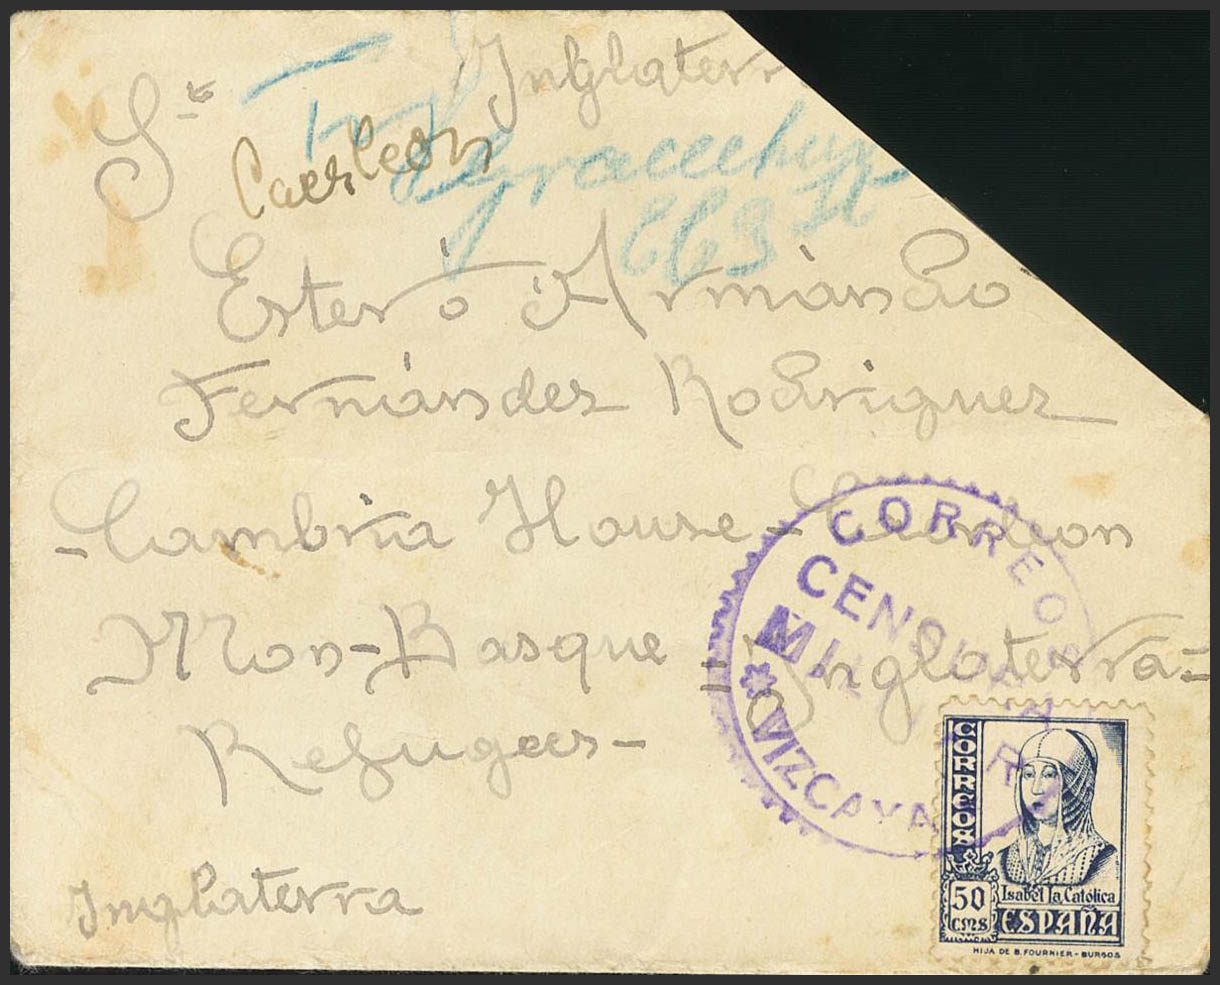 Inglaterr
Sr
Caerleon
663
Ester o Armando
Fernández Rodriguez
-Cambria House-Caerleon
Mon-Basque - Inglaterra-
Refugees-
Inglaterra
CORREOS
CENSURA MILITAR
VIZCAYA
CORREOS
50
CMS
Isabel la Católica
ESPAÑA
HIJA DE B. FOURNIER - BURGOS